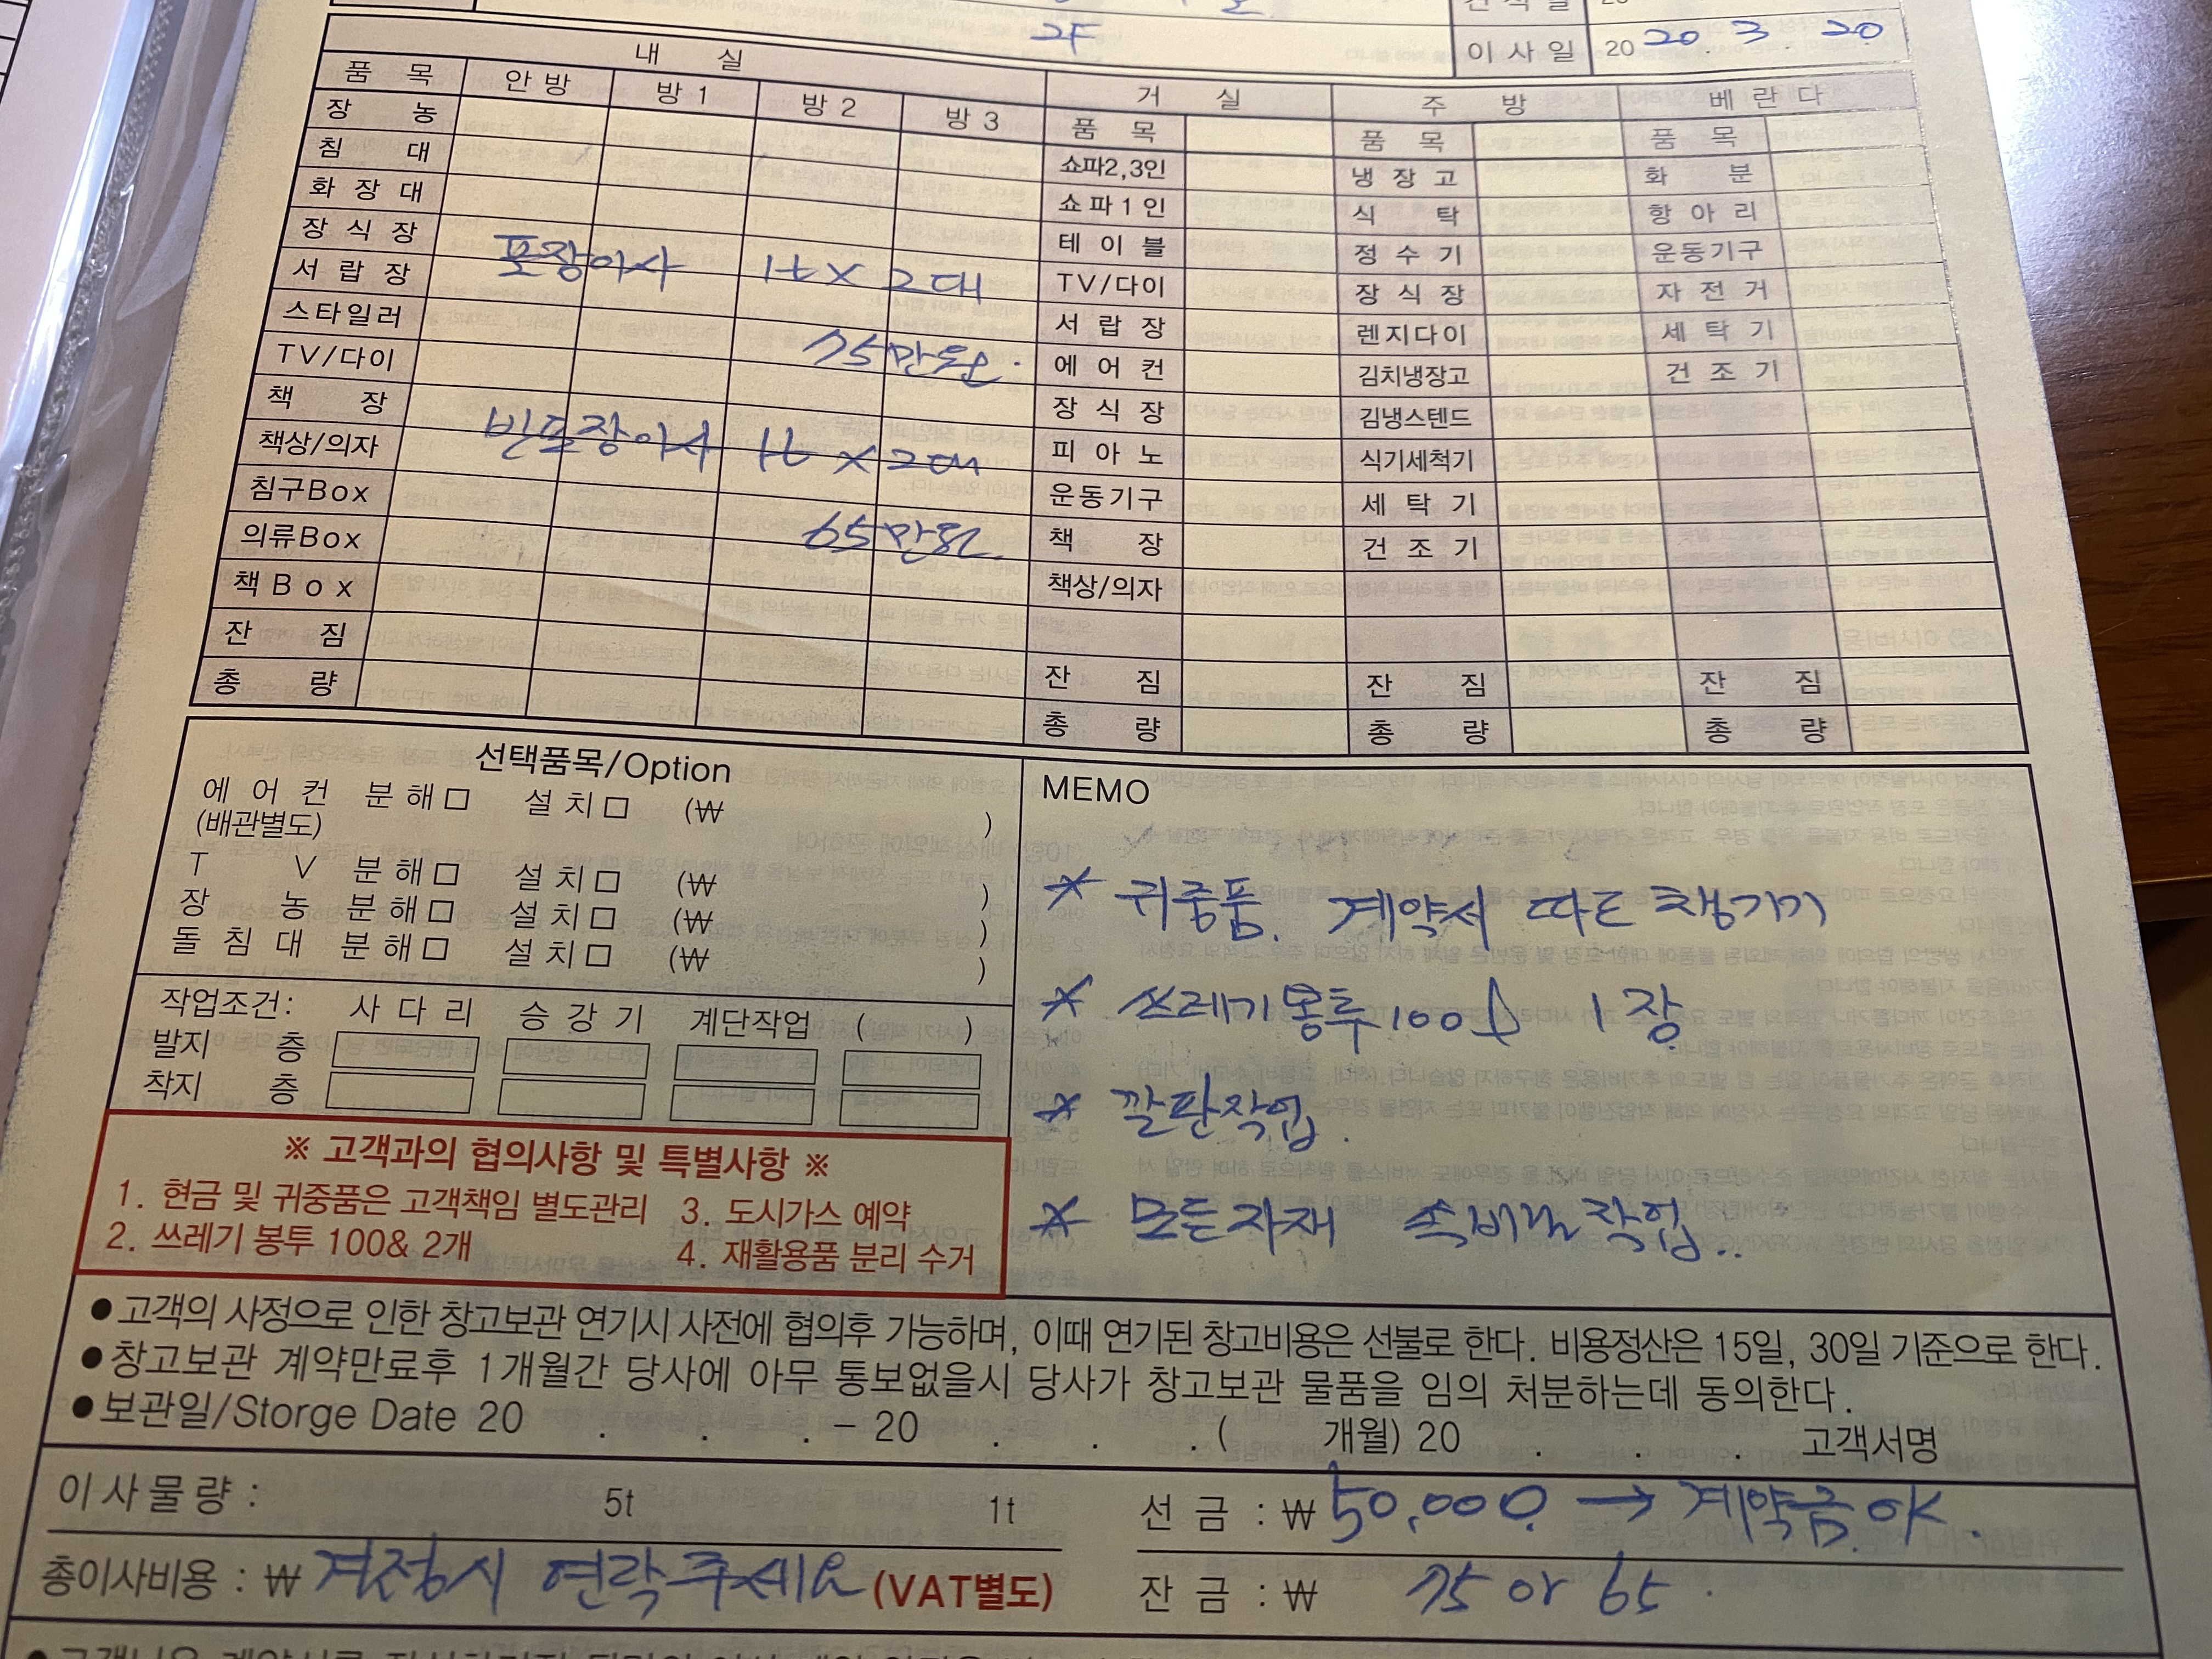 2F
이사일 20 20. 3. 20
내 실 거 실 주 방 베 란 다
품 목 안 방 방 1 방 2 방 3 품 목 품 목 품 목
장 농 쇼파2,3인 냉 장 고 화 분
침 대 쇼 파 1 인 식 탁 항 아 리
화 장 대 테 이 블 정 수 기 운동기구
장 식 장 TV/다이 장 식 장 자 전 거
서 랍 장 서 랍 장 렌지다이 세 탁 기
포장이사 1t X 2대
스타일러 에 어 컨 김치냉장고 건 조 기
75만원.
TV/다이 장 식 장 김냉스텐드
책 장 피 아 노 식기세척기
반포장이사 1t X 2대
책상/의자 운동기구 세 탁 기
침구Box 책 장 건 조 기
65만원.
의류Box 책상/의자
책 B o x
잔 짐 잔 짐 잔 짐 잔 짐
총 량 총 량 총 량 총 량
선택품목/Option
에 어 컨 분 해 □ 설 치 □ (₩ )
(배관별도)
T V 분 해 □ 설 치 □ (₩ )
장 농 분 해 □ 설 치 □ (₩ )
돌 침 대 분 해 □ 설 치 □ (₩ )
작업조건: 사 다 리 승 강 기 계단작업 ( )
발지 층
착지 층
MEMO
* 귀중품. 계약서 따로 챙기기
* 쓰레기봉투 100ℓ 1장
* 깔판작업.
* 모든자재 작업..
※ 고객과의 협의사항 및 특별사항 ※
1. 현금 및 귀중품은 고객책임 별도관리 3. 도시가스 예약
2. 쓰레기 봉투 100& 2개 4. 재활용품 분리 수거
● 고객의 사정으로 인한 창고보관 연기시 사전에 협의후 가능하며, 이때 연기된 창고비용은 선불로 한다. 비용정산은 15일, 30일 기준으로 한다.
● 창고보관 계약만료후 1개월간 당사에 아무 통보없을시 당사가 창고보관 물품을 임의 처분하는데 동의한다.
● 보관일/Storge Date 20 . . . 20 . . . ( 개월) 20 . . . 고객서명
이 사 물 량 : 5t 1t 선 금 : ₩ 50,000 → 계약금 OK.
총이사비용 : ₩ 결정시 연락주세요 (VAT별도) 잔 금 : ₩ 75 or 65.